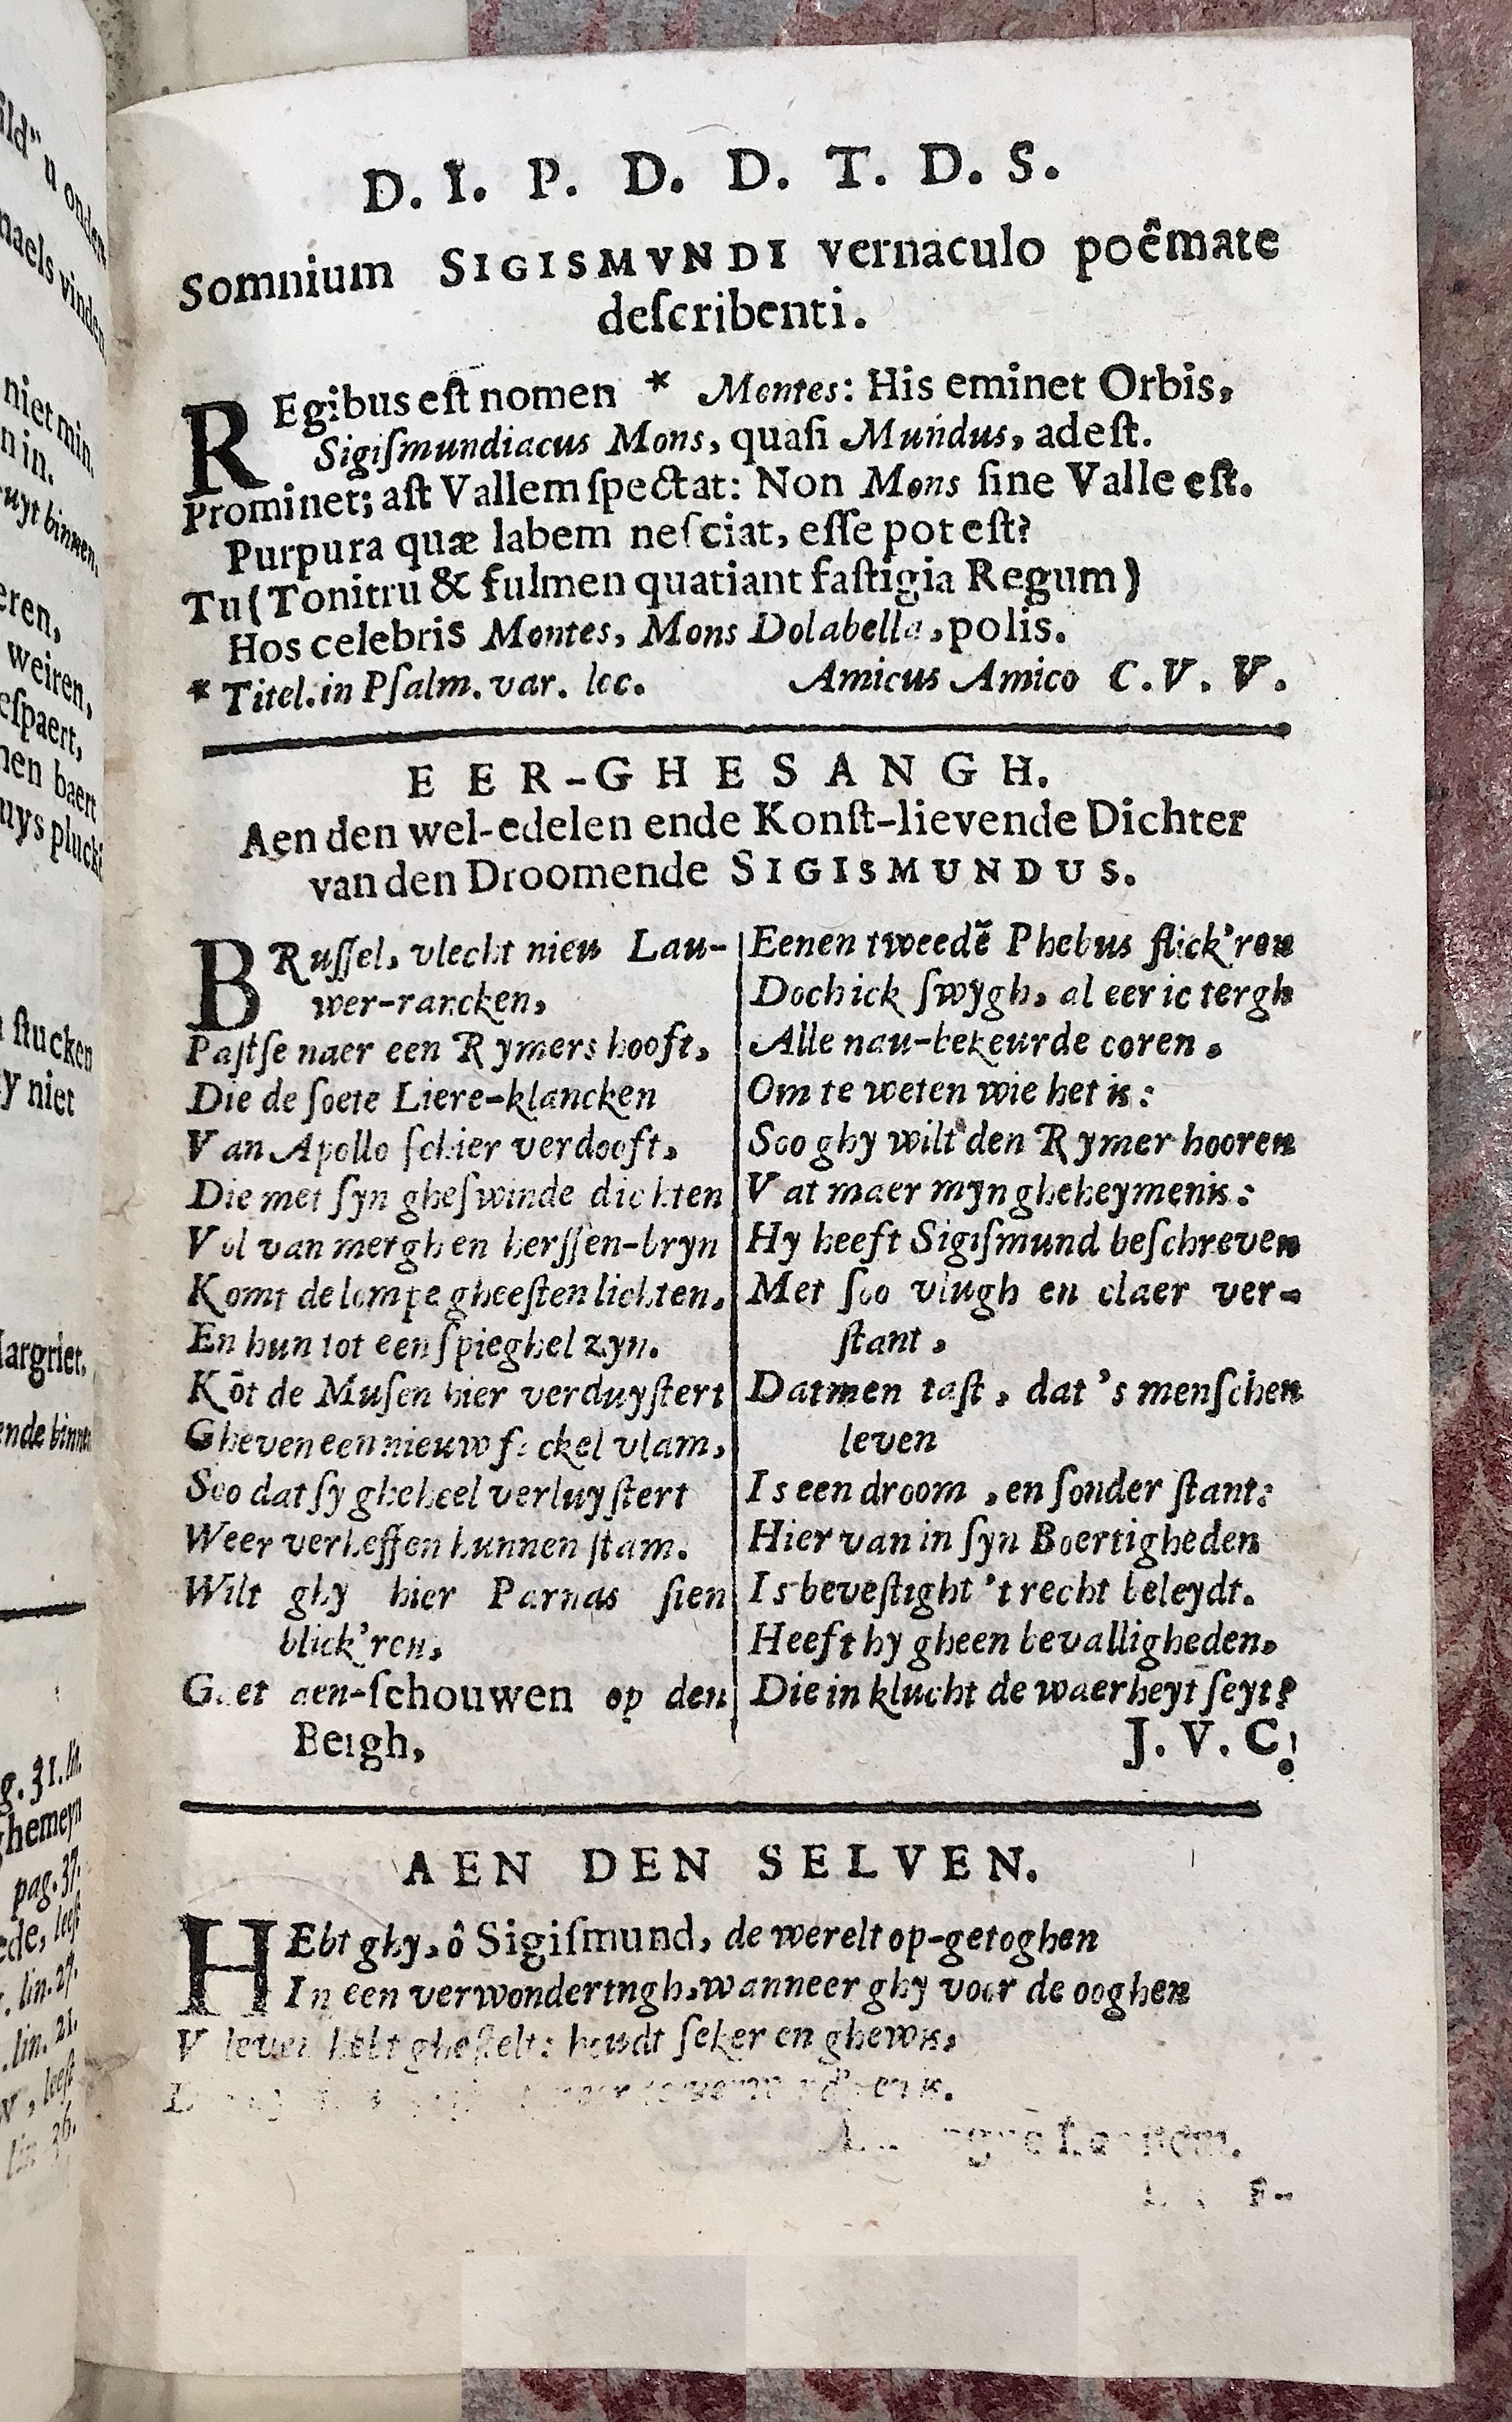 D. I. P. D. D. T. D. S.
Somnium SIGISMVNDI vernaculo poêmate
deſcribenti.
REgibus eſt nomen * Montes: His eminet Orbis,
Sigiſmundiacus Mons, quaſi Mundus, adeſt.
Prominet; aſt Vallem ſpectat: Non Mons ſine Valle eſt.
Purpura quæ labem neſciat, eſſe poteſt?
Tu (Tonitru & fulmen quatiant faſtigia Regum)
Hos celebris Montes, Mons Dolabella, polis.
* Titel. in Pſalm. var. lec. Amicus Amico C. V. V.
EER-GHESANGH.
Aen den wel-edelen ende Konſt-lievende Dichter
van den Droomende SIGISMUNDUS.
BRuſſel, vlecht nieu Lau-
wer-rancken,
Paſtſe naer een Rymers hooft,
Die de ſoete Liere-klancken
Van Apollo ſchier verdooft,
Die met ſyn gheſwinde dichten
Vol van mergh en herſſen-bryn
Komt de lompe gheeſten lichten,
En hun tot een ſpieghel zyn.
Kōt de Muſen hier verduyſtert
Gheven een nieuw fackel vlam,
Soo dat ſy gheheel verluyſtert
Weer verheffen hunnen ſtam.
Wilt ghy hier Parnas ſien
blick'ren,
Gaet aen-ſchouwen op den
Beigh,
Eenen tweedē Phebus flick'ren
Doch ick ſwygh, al eer ic tergh
Alle nau-bekeurde ooren,
Om te weten wie het is:
Soo ghy wilt den Rymer hooren
Vat maer myn gheheymenis:
Hy heeft Sigiſmund beſchreven
Met ſoo vlugh en claer ver-
ſtant,
Datmen taſt, dat 's menſchen
leven
Is een droom, en ſonder ſtant:
Hier van in ſyn Boertigheden
Is beveſtight 't recht beleydt.
Heeft hy gheen bevalligheden,
Die in klucht de waerheyt ſeyt?
J. V. C.
AEN DEN SELVEN.
HEbt ghy, ô Sigiſmund, de werelt op-getoghen
In een verwondertngh, wanneer ghy voor de ooghen
V leven hebt gheſtelt: houdt ſeker en ghewis,
is.
ild" u onder
naels vinden
niet min.
n in.
ruyt binnen.
eren,
weiren,
eſpaert,
nen baert
uys pluckt
ſtucken
y niet
Margriet.
ende binne
g. 31. lin.
ghemeyn
pag. 37.
ede, leeſt
lin. 27.
lin. 21.
leeſt
lin. 36.